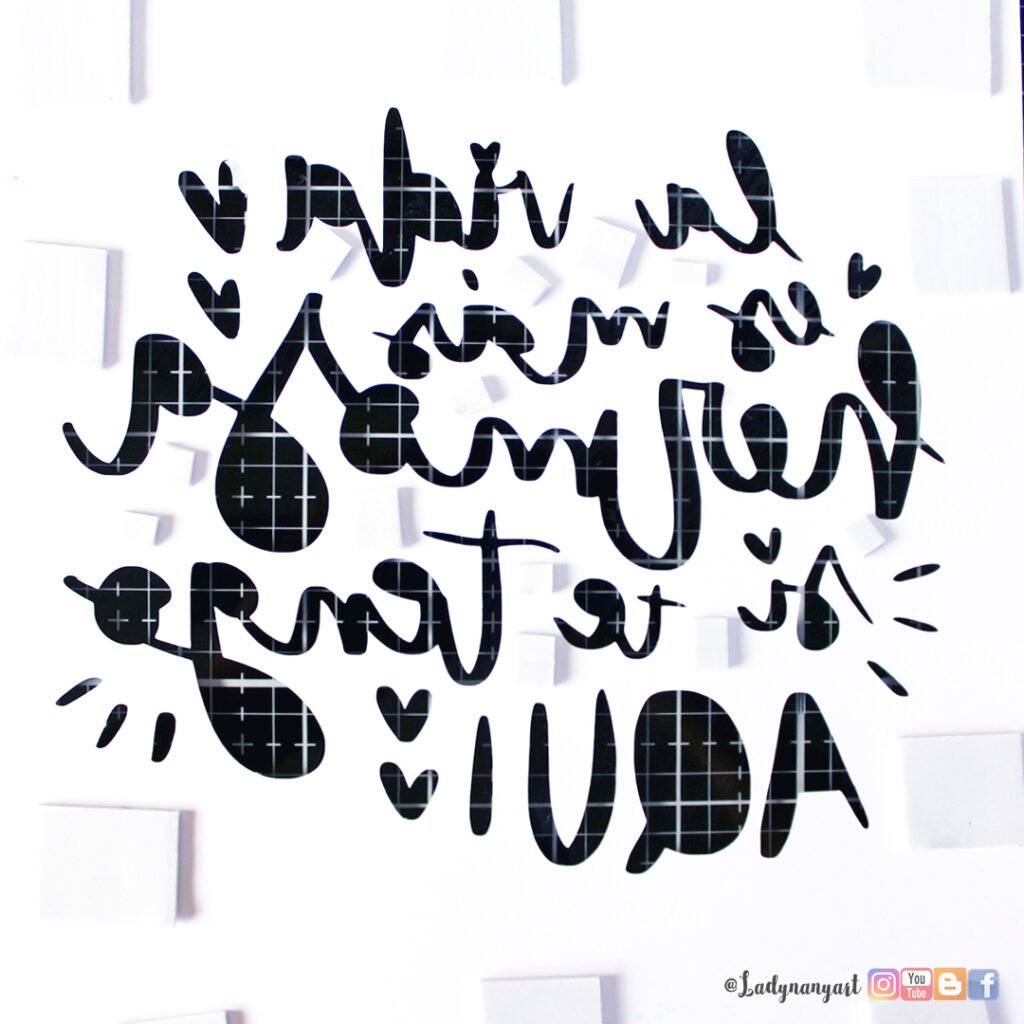 la vida
es más
hermosa
si te tengo
AQUI
@Ladynanyart You Tube